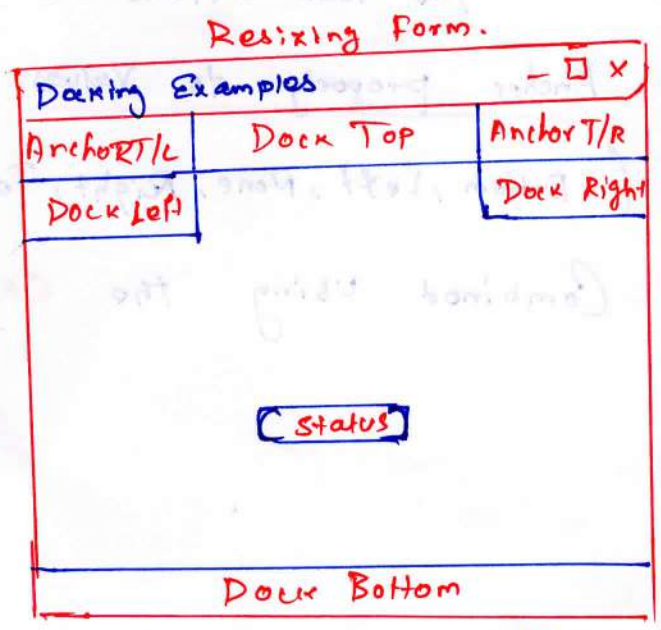 Resizing Form.
Docking Examples - □ ×
Anchor T/L Dock Top Anchor T/R
Dock Left Dock Right
Status
Dock Bottom